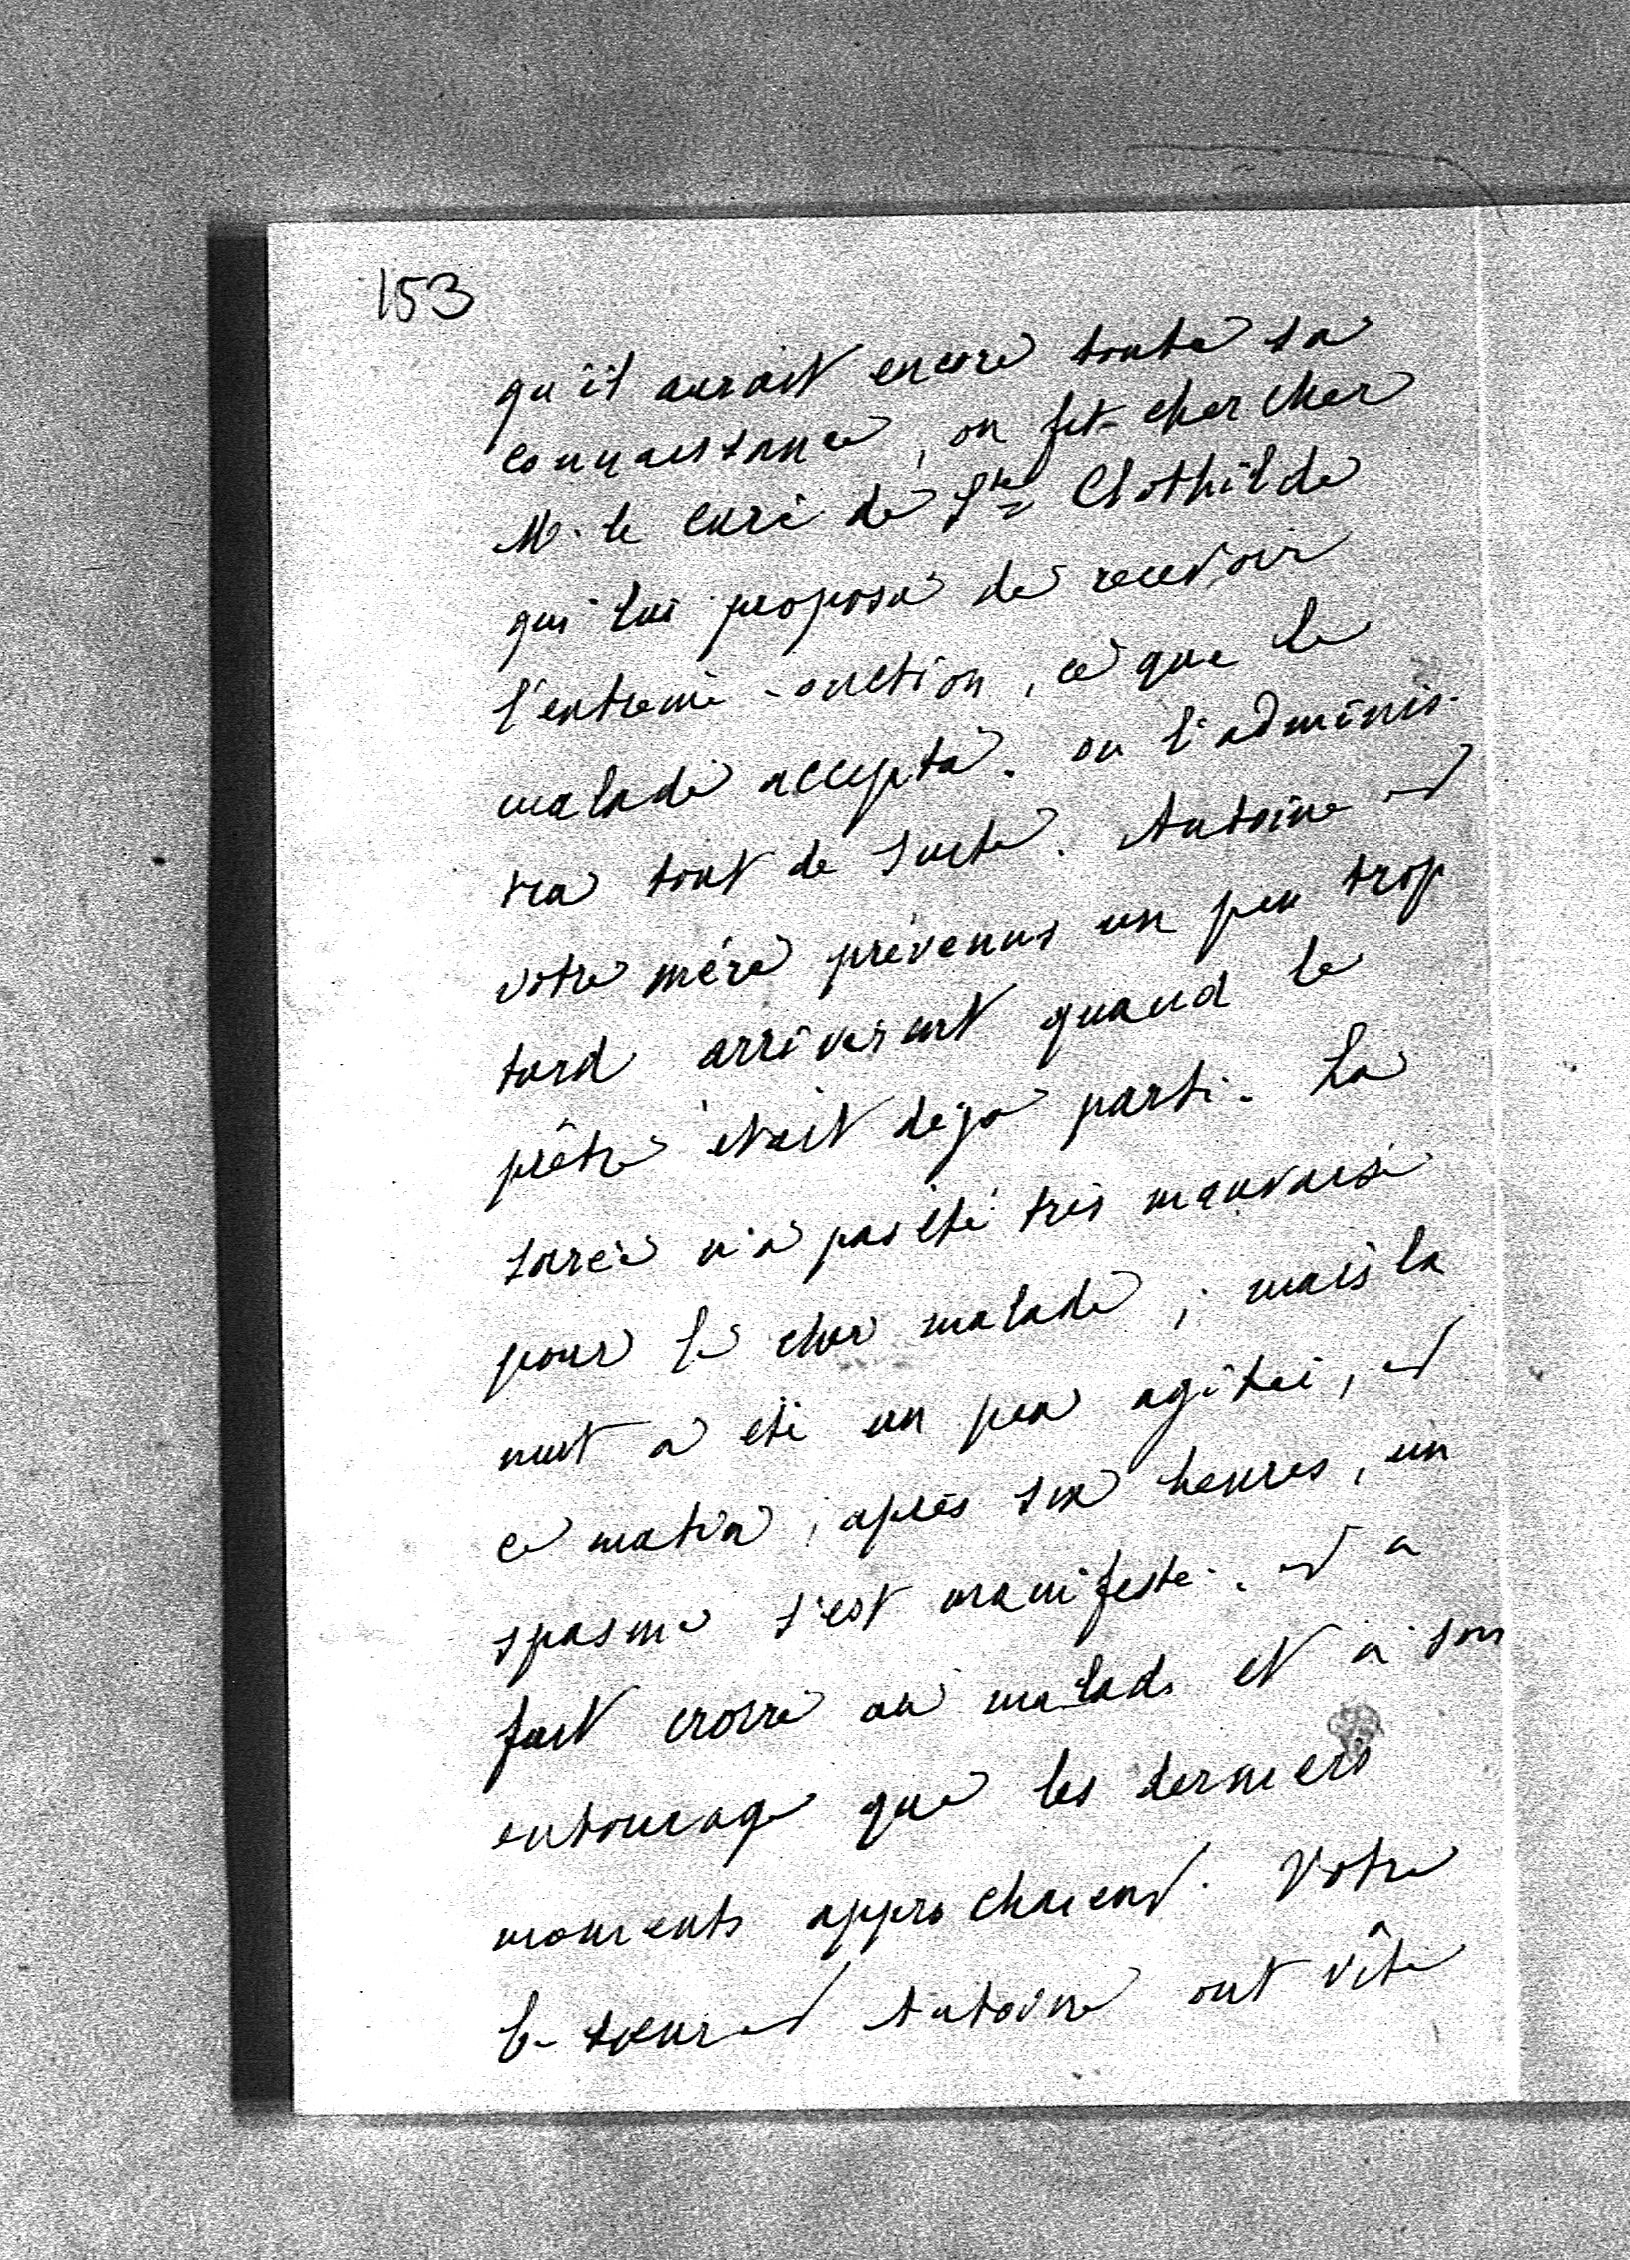 153
qu'il aurait encore toute sa
connaissance, on fit chercher
M. le curé de Ste Clothilde
qui lui proposa de recevoir
l'extrême-onction, ce que le
malade accepta. on l'adminis-
tra tout de suite. Antoine et
votre mère prévenus un peu trop
tard arrivèrent quand le
prêtre était déjà parti. La
soirée n'a pas été très mauvaise
pour le cher malade; mais la
nuit a été un peu agitée, et
ce matin, après six heures, un
spasme s'est manifesté. et a
fait croire au malade et à son
entourage que les derniers
moments approchaient. Votre
b. soeur et Antoine ont vîte